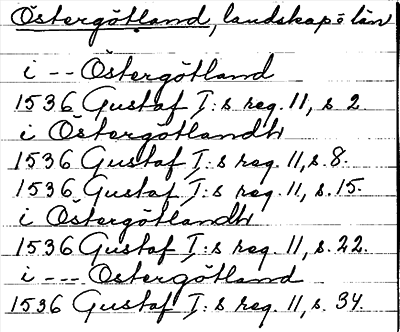 Östergötland, landskap o län
i -- Östergötland
1536 Gustaf I:s reg. 11, s 2.
i Östergötlandh
1536 Gustaf I:s reg. 11, s. 8.
1536 Gustaf I:s reg. 11, s. 15.
i Östergötlandh
1536 Gustaf I:s reg. 11, s. 22.
i --- Östergötland
1536 Gustaf I:s reg. 11, s. 34.